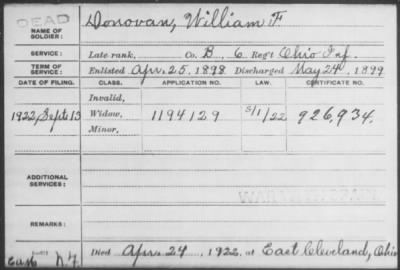 DEAD
NAME OF SOLDIER: Donovan, William F
SERVICE: Late rank, Co. B, 6 Reg't Ohio Inf.
TERM OF SERVICE: Enlisted Apr. 25, 1898 Discharged May 24, 1899
DATE OF FILING. CLASS. APPLICATION NO. LAW. CERTIFICATE NO.
Invalid,
1922, Sept 13 Widow, 1194129 5/1/22 926,934.
Minor,
ADDITIONAL SERVICES:
REMARKS:
Died Apr. 24, 1922, at East Cleveland, Ohio